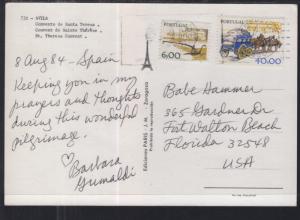 724 - AVILA
Convento de Santa Teresa.
Couvent de Sainte Thérèse.
St. Theresa Convent.
8 Aug 84 - Spain
Keeping you in my
prayers and thoughts
during this wonderful
pilgrimage.
♡ Barbara
Grumaldi
Ediciones PARIS - J.M. - Zaragoza
Prohibida la reproducción
PORTUGAL
6.00
PORTUGAL
40.00
Babe Hammer
365 Gardner Dr
Fort Walton Beach
Florida 32548
USA